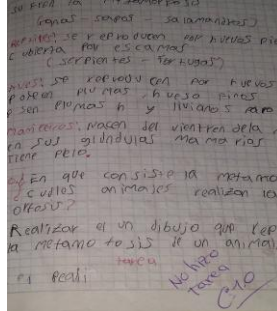 (ranas sapos salamandras)
se reproducen por huevos pie
cubierta por escamas
(serpientes - tortugas)
aves: se reproducen por huevos
poseen plumas - hueso pinos
y sen plumas h y livianos para
mamiferos. Nacen del vientre de la
en sus glandulas mamarias
tiene pelo.
En que consiste la metamo
cuales animales realizan la
ofosis?
Realizar el un dibujo que rep
la metamo tosis de un animal
tarea
el Reali
No hizo
Tarea